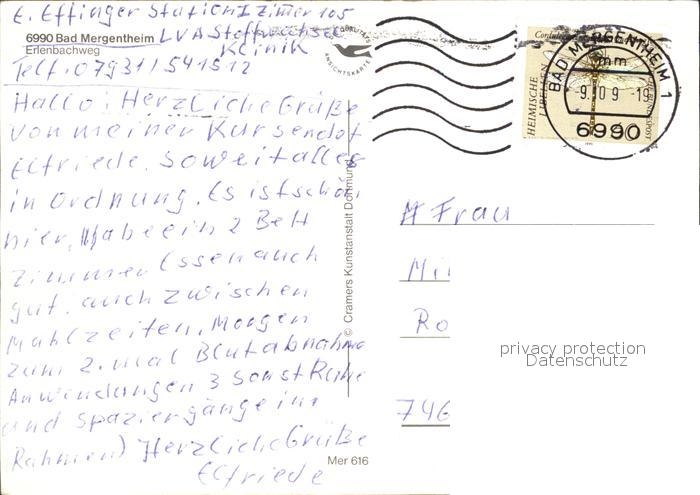 E. Effinger Station I Zimer 105
6990 Bad Mergentheim LVA Stoffwechsel
Erlenbachweg Klinik
Telf. 07931/541512
ANSICHTSKARTE
Hallo! Herzliche Grüße
von meiner Kur sendet
Elfriede. Soweit alles
in Ordnung. Es ist schön
hier, Habe ein 2 Bett
Zimmer Essen auch
gut. auch zwischen
Mahlzeiten. Morgen
zum 2. mal Blutabnahme
Anwendungen 3 sonst Ruhe
und Spaziergänge im
Rahmen) Herzliche Grüße
Elfriede
© Cramers Kunstanstalt Dortmund
Mer 616
HEIMISCHE LIBELLEN
BUNDESPOST
BAD MERGENTHEIM 1
mm
-9.10.9 -19
6990
Frau
Mi
Ro
746
privacy protection
Datenschutz